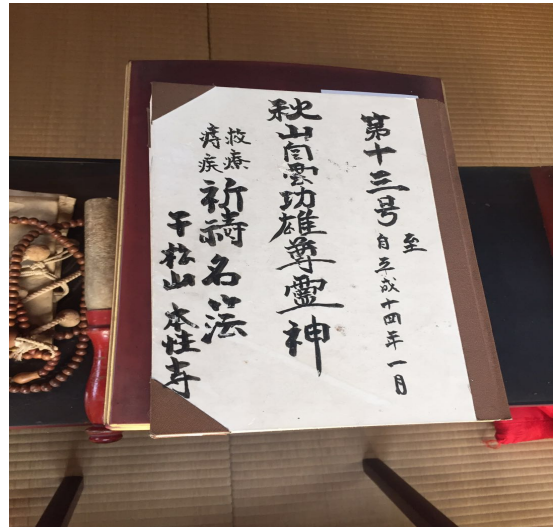 第十三号 自平成十四年一月
至
秋山自雲功雄尊霊神
救療
痔疾
祈祷名簿
千松山 本性寺